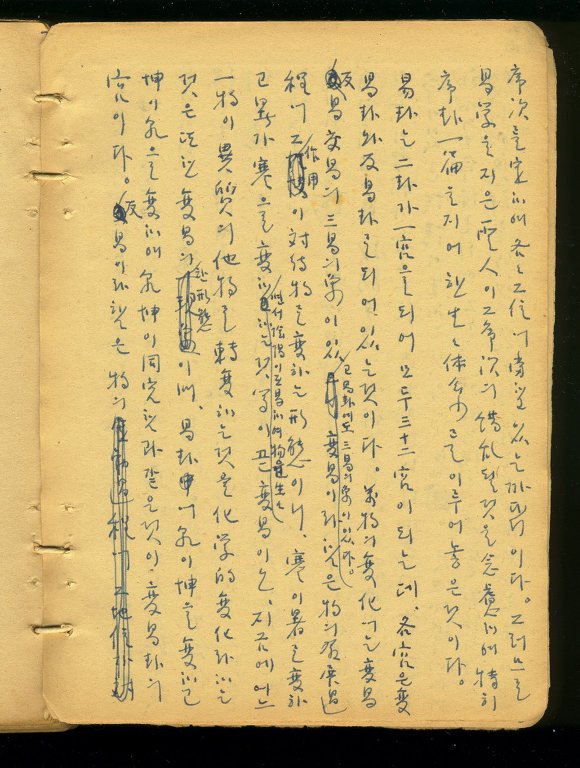 序次를 定하여 各各 그 位에 있는 까닭이다. 그러므로
易学을 지은 聖人이 그 序次의 錯乱될 것을 念慮하여 特히
序卦一篇을 지어 한 体系를 이루어 놓은 것이다.
易卦는 二卦가 一宮을 되어 모두 三十二宮이 되는데, 各宮은 變
易卦와 反易卦로 되어 있는 것이다. 萬物의 變化에는 變易
反易 交易의 三易의 象이 있고 易卦에도 三易의 象이 있다. 變易이라 함은 物의 發展過
程에 그 作用이 対待物로 變하는 形態이니, 寒이 暑로 變하
고 暑가 寒으로 變하는 것 等이 곧 變易이오, 지금에
一物이 異質의 他物로 轉變하는 것을 化学的 變化라 하는
것은 또한 變易의 한 形態이며, 易卦中에 乾이 坤으로 變하고
坤이 乾으로 變하여 乾坤이 同宮한 것과 같은 것이 變易卦의
宮이다. 反易이라 함은 物의